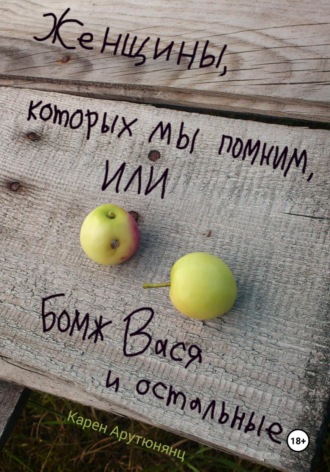 Женщины,
которых мы помним,
ИЛИ
Бомж Вася
и остальные
Карен Арутюнянц
18+